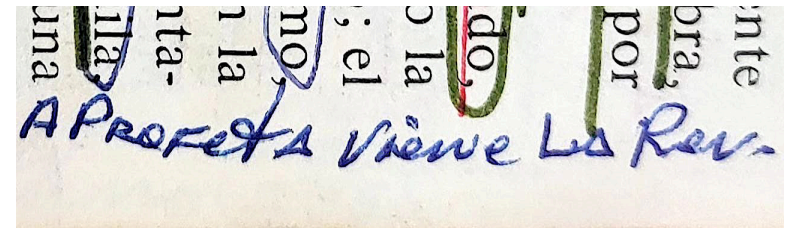 una
ila,
nta-
n la
mo,
; el
o la
do,
por
bra,
ente
A PROFETA Viene LA Rev.